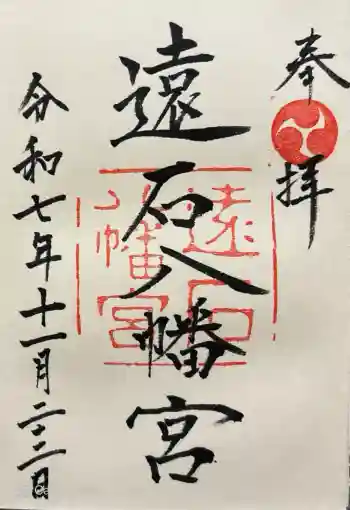 奉拝
遠石八幡宮
令和七年十一月二三日
遠石
八幡宮